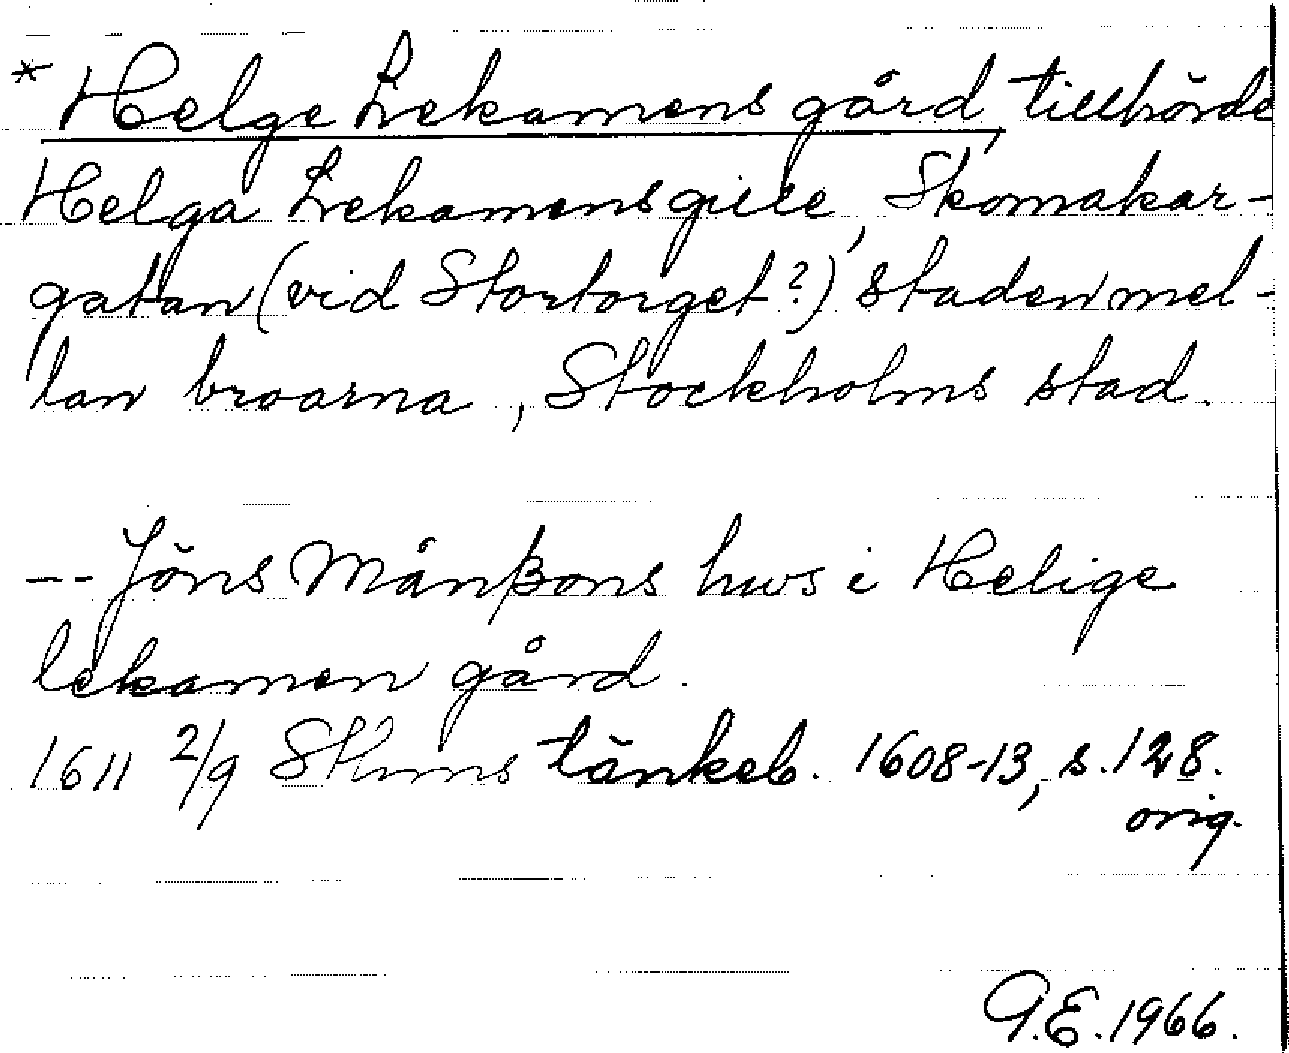 * Helge Lekamens gård, tillhörde
Helga Lekamensgille, Skomakar-
gatan (vid Stortorget?), Staden mel-
lan broarna, Stockholms stad.
-- Jöns Månßons hws i Helige
lekamen gård.
1611 2/9 Sthms tänkeb. 1608-13, s. 128.
orig.
G.E. 1966.